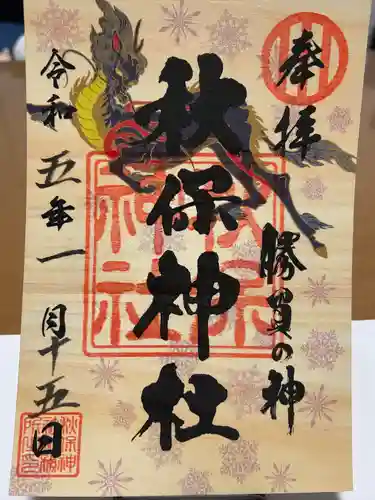 奉拝
勝負の神
秋保神社
令和五年一月十五日
秋保
神社